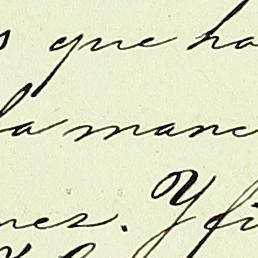 s que ha
la mane
nes. Y fi